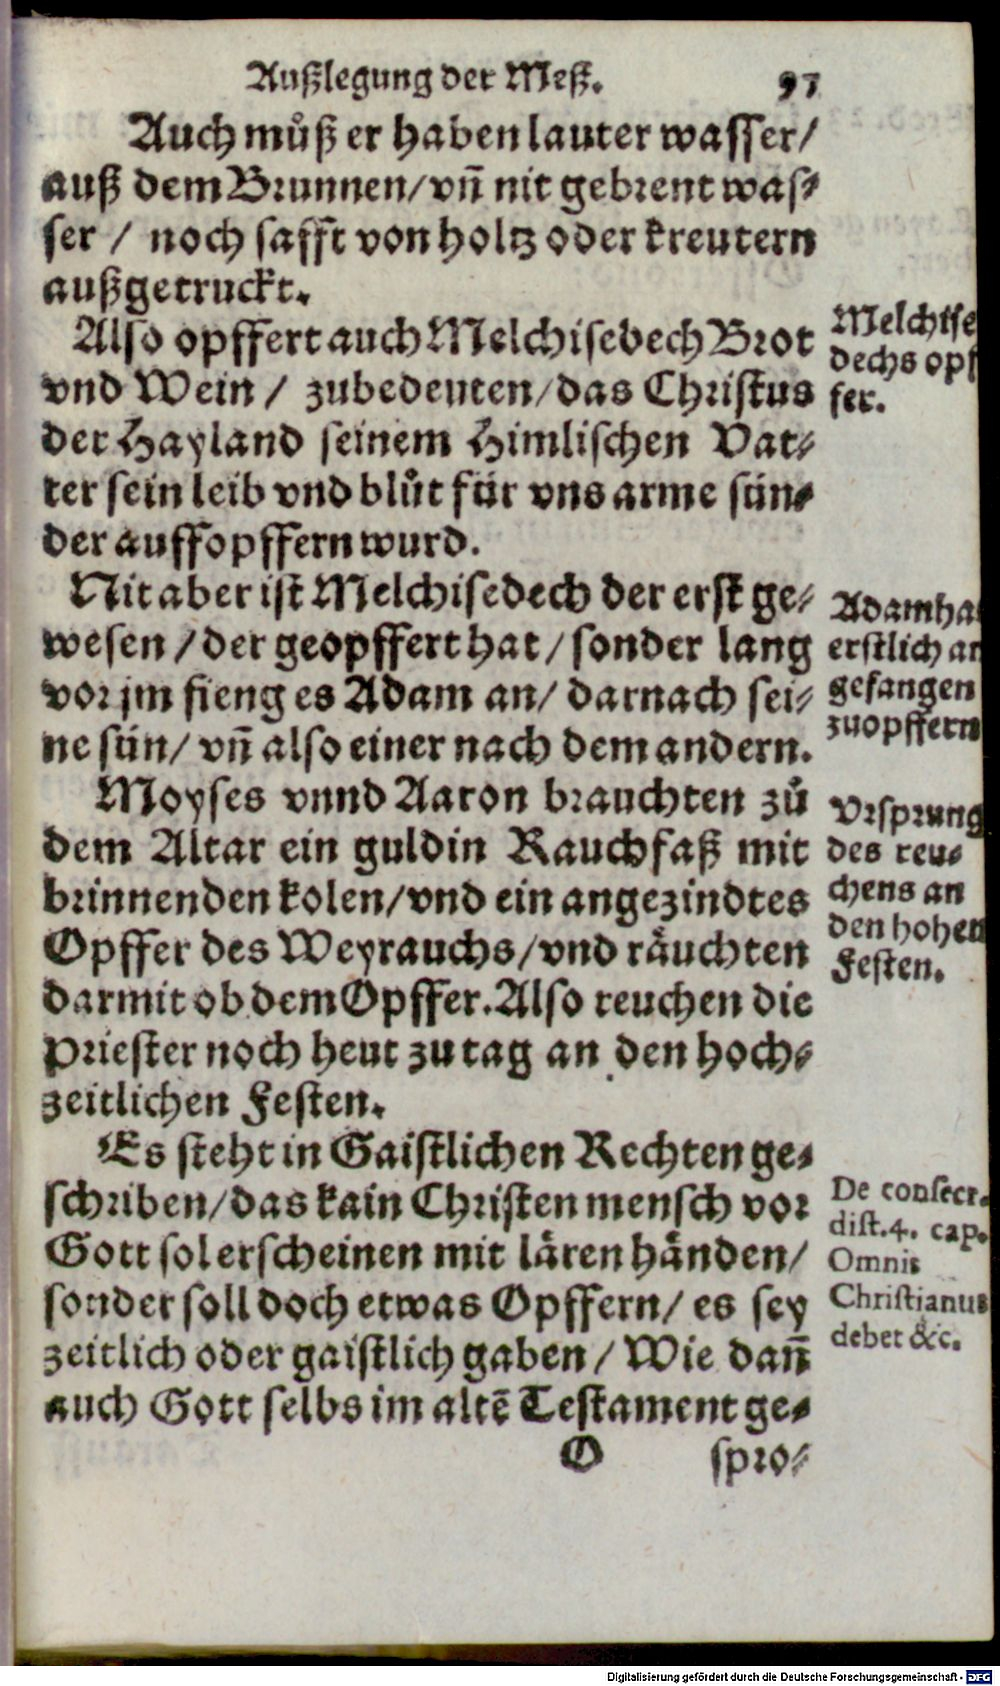 Außlegung der Meß. 97
Auch můß er haben lauter wasser/
auß dem Brunnen/ vñ nit gebrent was-
ser / noch safft von holtz oder kreutern
außgetruckt.
Also opffert auch Melchisedech Brot
vnd Wein / zubedeuten/ das Christus
der Hayland seinem Himlischen Vat-
ter sein leib vnd blůt für vns arme sün-
der auffopffern wurd.
Nit aber ist Melchisedech der erst ge-
wesen / der geopffert hat / sonder lang
vor jm fieng es Adam an/ darnach sei-
ne sün/ vñ also einer nach dem andern.
Moyses vnnd Aaron brauchten zů
dem Altar ein guldin Rauchfaß mit
brinnenden kolen/ vnd ein angezindtes
Opffer des Weyrauchs/ vnd räuchten
darmit ob dem Opffer. Also reuchen die
Priester noch heut zu tag an den hoch-
zeitlichen Festen.
Es steht in Gaistlichen Rechten ge-
schriben/ das kain Christen mensch vor
Gott sol erscheinen mit lären händen/
sonder soll doch etwas Opffern/ es sey
zeitlich oder gaistlich gaben / Wie dañ
auch Gott selbs im altẽ Testament ge-
O spro-
Melchise
dechs opf
fer.
Adam ha
erstlich an
gefangen
zuopffern
Vrsprung
des reu-
chens an
den hohen
Festen.
De consecr.
dist.4. cap.
Omnis
Christianus
debet &c.
Digitalisierung gefördert durch die Deutsche Forschungsgemeinschaft - DFG